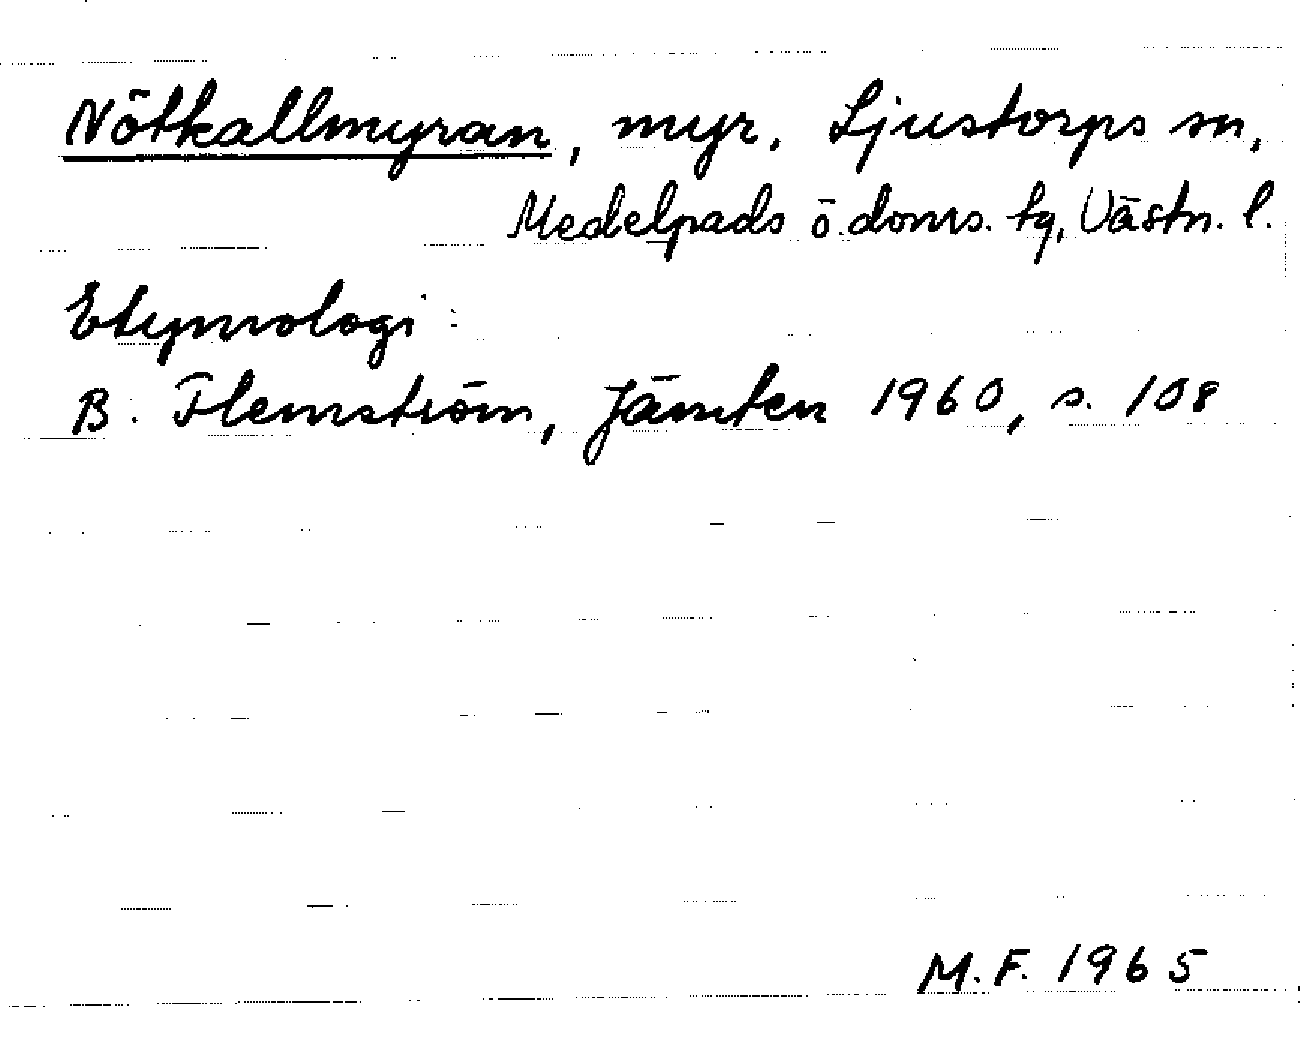 Nötkallmyran, myr. Ljustorps sn,
Medelpads ö. domrs. tg, Västn. l.
Etymologi:
B. Flemström, Jämten 1960, s. 108
M.F. 1965